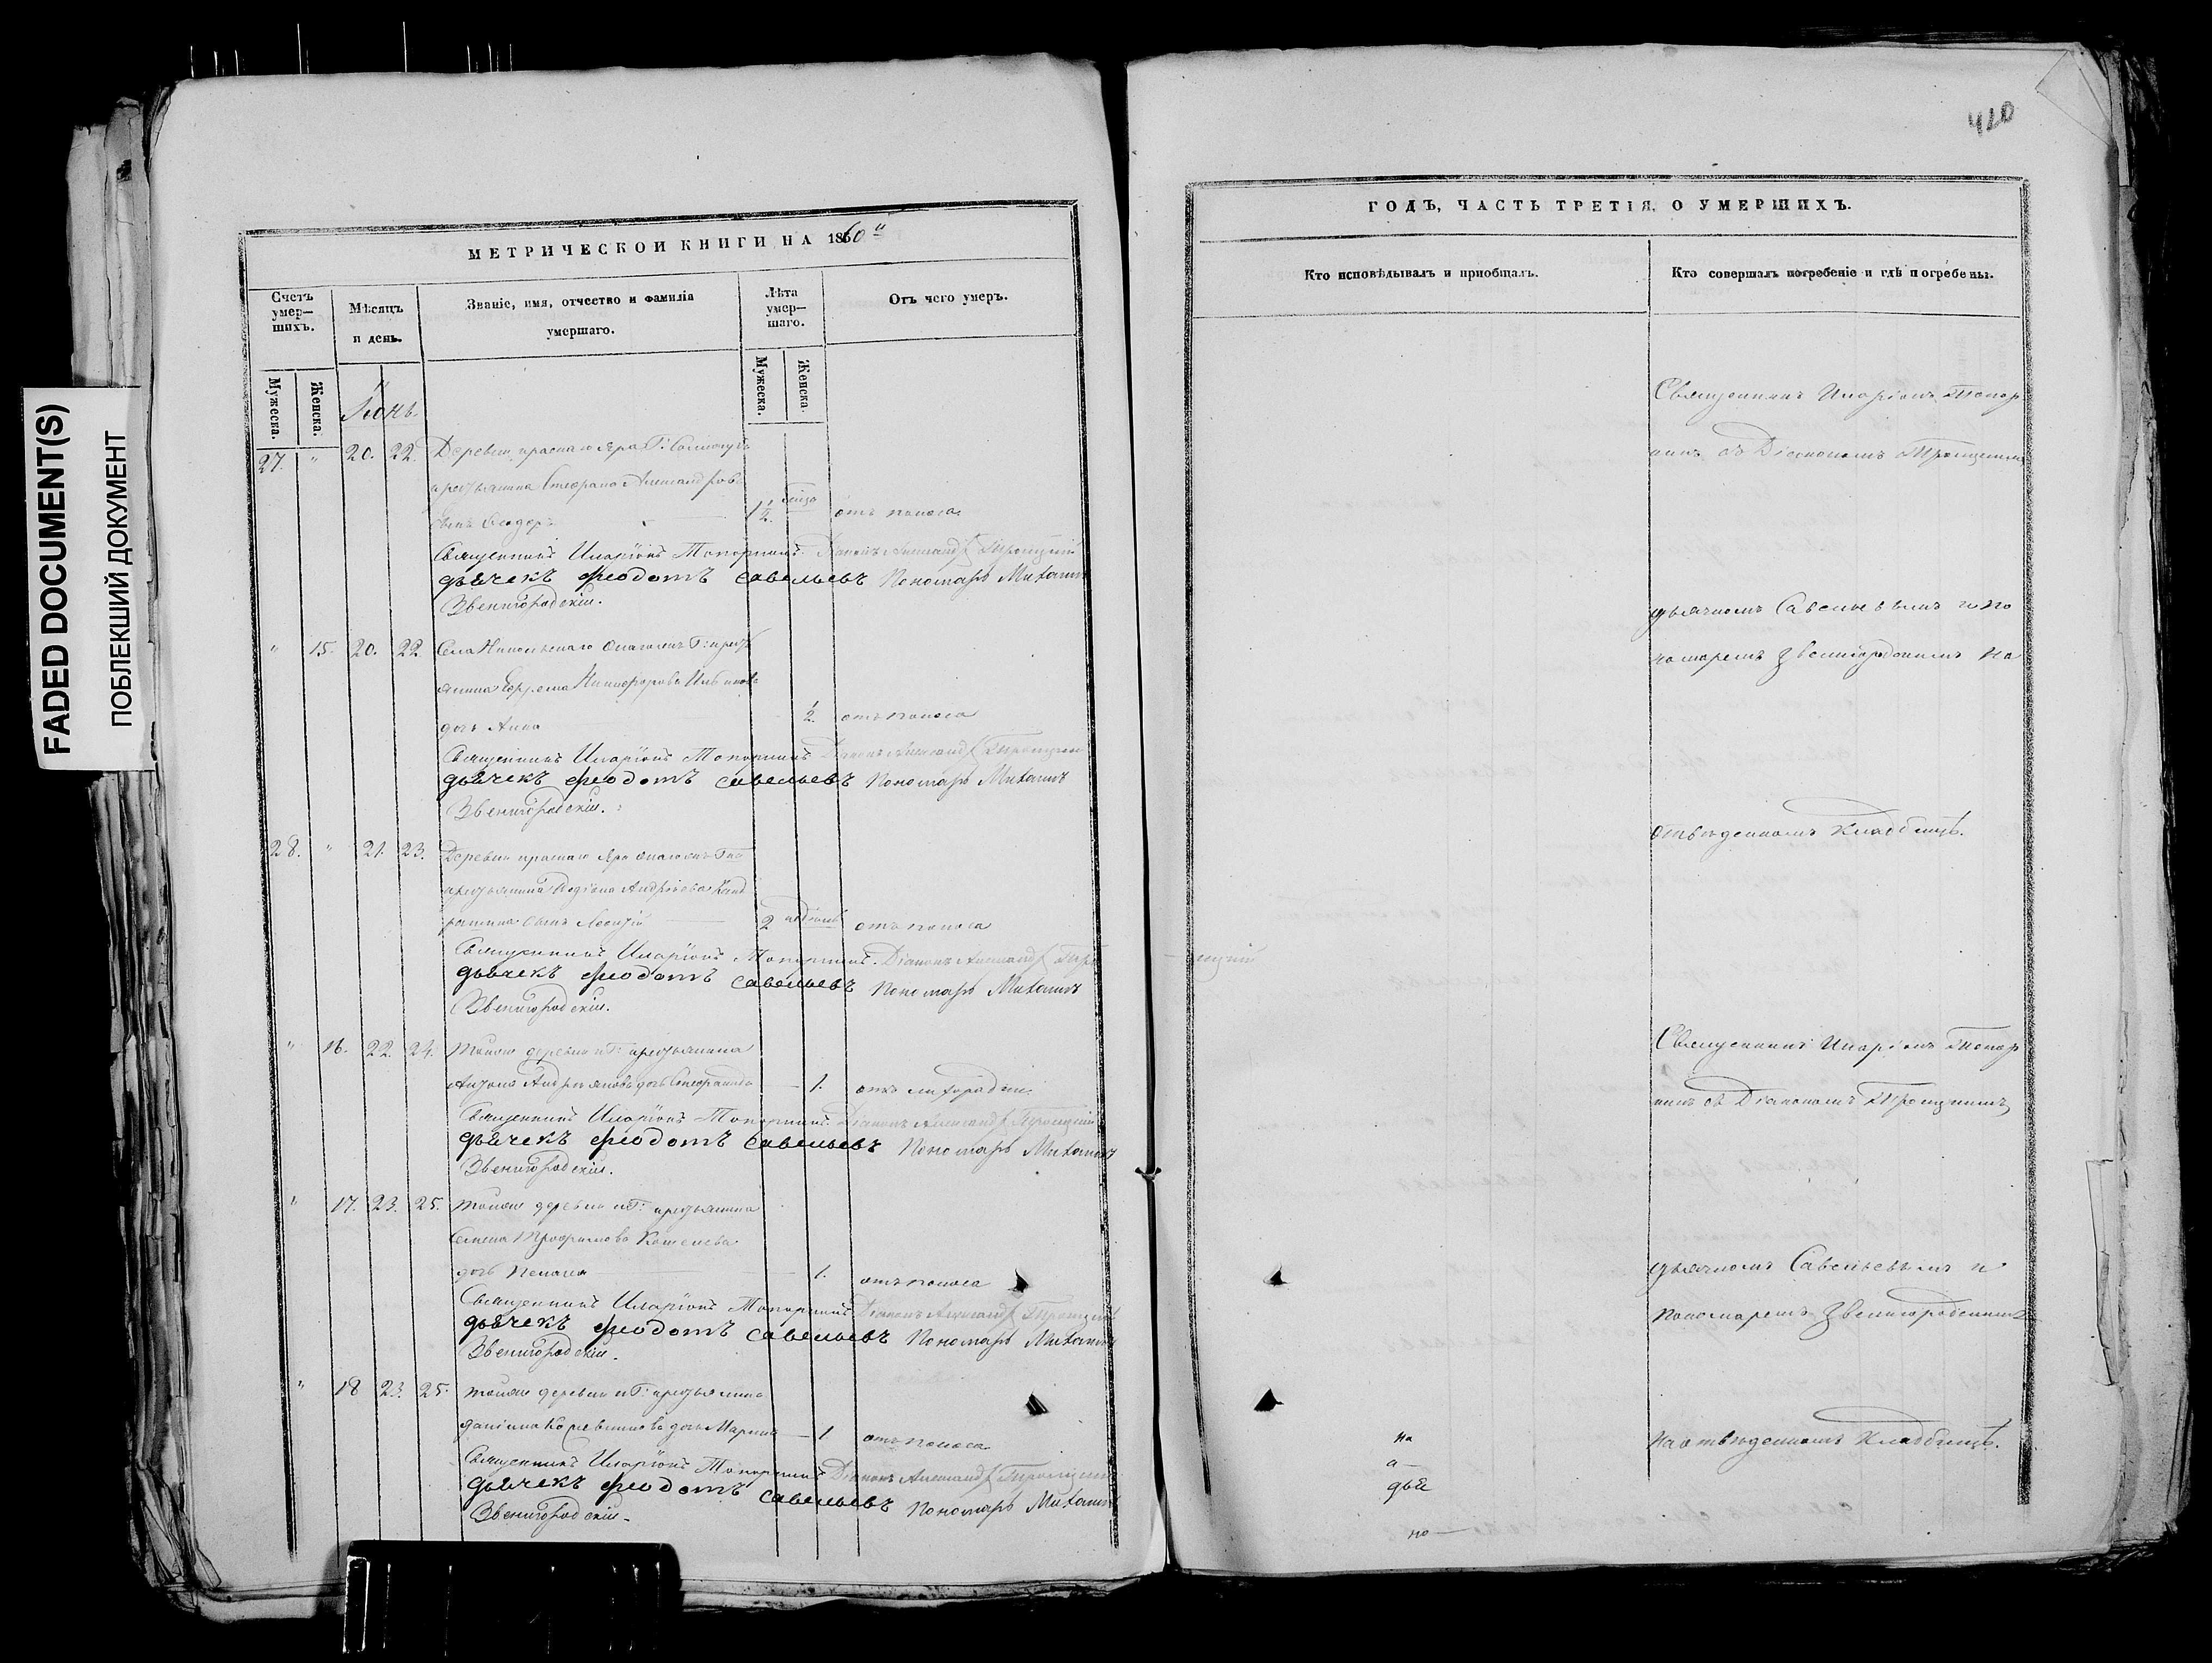 FADED DOCUMENT(S)
ПОБЛЕКШИЙ ДОКУМЕНТ
МЕТРИЧЕСКОИ КНИГИ НА 1860
Счетъ умер—шихъ.
Мѣсяцъ и день.
Званіе, имя, отчество и фамилія умершаго.
Лѣта умер—шаго.
Отъ чего умеръ.
Мужеска.
Женска.
Мужеска.
Женска.
Іюнь
27. " 20. 22. Деревни краснаго Яра Г:
крестьянина Стефана Александров
сынъ 1½ отъ поноса
Священникъ Иларіонъ Топорнинъ Діаконъ Александръ Троицкій
дьячекъ Феодотъ Савельевъ Пономарь Михаилъ
Звенигородскій.
" 15. 20. 22. Села Никольскаго Г: кресть
янина Ефрема Никифорова
дочь Анна ½. отъ поноса
Священникъ Иларіонъ Топорнинъ Діаконъ Александръ Троицкій
дьячекъ Феодотъ Савельевъ Пономарь Михаилъ
Звенигородскій.
28. " 21. 23. Деревни краснаго Яра
крестьянина Андреева
сынъ 2 отъ поноса
Священникъ Иларіонъ Топорнинъ. Діаконъ Александръ Трои
цкій
дьячекъ Феодотъ Савельевъ Пономарь Михаилъ
Звенигородскій.
" 16. 22. 24. тойже деревни и Г: крестьянина
дочь 1. отъ лихорадки
Священникъ Иларіонъ Топорнинъ Діаконъ Александръ Троицкій
дьячекъ Феодотъ Савельевъ Пономарь Михаилъ
Звенигородскій.
" 17. 23. 25. тойже деревни и Г: крестьянина
Трофимова
дочь 1. отъ поноса
Священникъ Иларіонъ Топорнинъ Діаконъ Александръ Троицкій
дьячекъ Феодотъ Савельевъ Пономарь Михаилъ
Звенигородскій.
" 18 23. 25. тойже деревни и Г: крестьянина
даніила дочь Марина 1 отъ поноса
Священникъ Иларіонъ Топорнинъ Діаконъ Александръ Троицкій
дьячекъ Феодотъ Савельевъ Пономарь Михаилъ
Звенигородскій.
420
ГОДЪ, ЧАСТЬ ТРЕТІЯ, О УМЕРШИХЪ.
Кто исповѣдывалъ и приобщалъ.
Кто совершалъ погребеніе и гдѣ погребены.
Священникъ Иларіонъ Топор
нинъ съ Діакономъ Троицкимъ
дьячкомъ Савельевымъ и по
номаремъ Звенигородскимъ на
отвѣденномъ кладбищѣ.
Священникъ Иларіонъ Топор
нинъ съ Діакономъ Троицкимъ
дьячкомъ Савельевымъ и
пономаремъ Звенигородскимъ
на отвѣденномъ кладбищѣ.
на
а
дья
но—